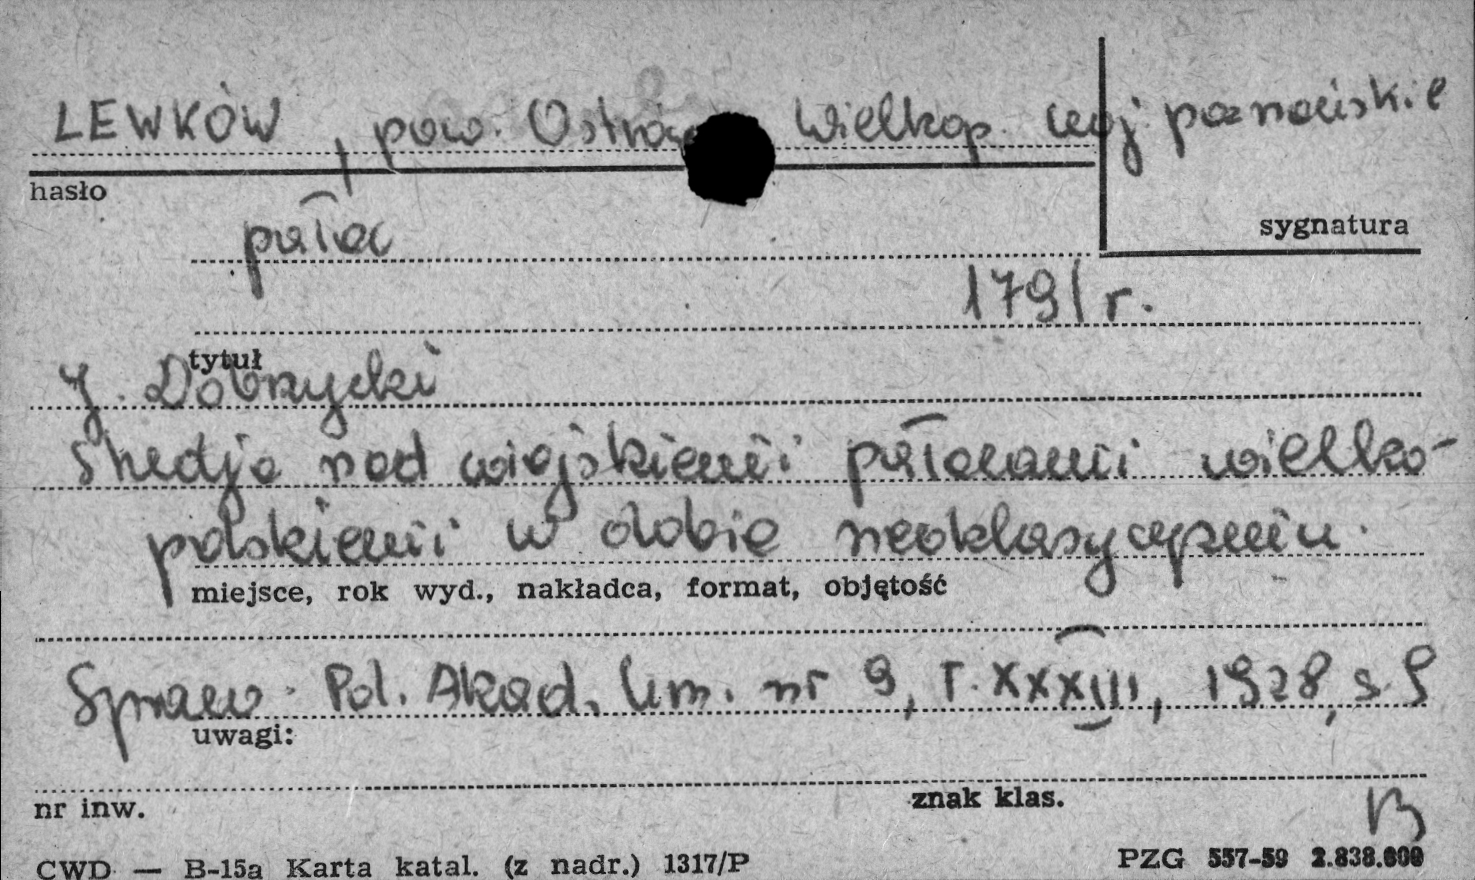 LEWKÓW, pow. Ostrów Wielkop. woj. poznańskie
hasło
pałac
sygnatura
1791 r.
tytuł
J. Dobrzycki
Studja nad wiejskiemi pałacami wielko-
polskiemi w dobie neoklasycyzmu.
miejsce, rok wyd., nakładca, format, objętość
Spraw. Pol. Akad. Um. nr 9, T. XXXIII, 1928, s. 9
uwagi:
nr inw.
znak klas.
B
CWD — B-15a Karta katal. (z nadr.) 1317/P
PZG 557-59 2.838.600